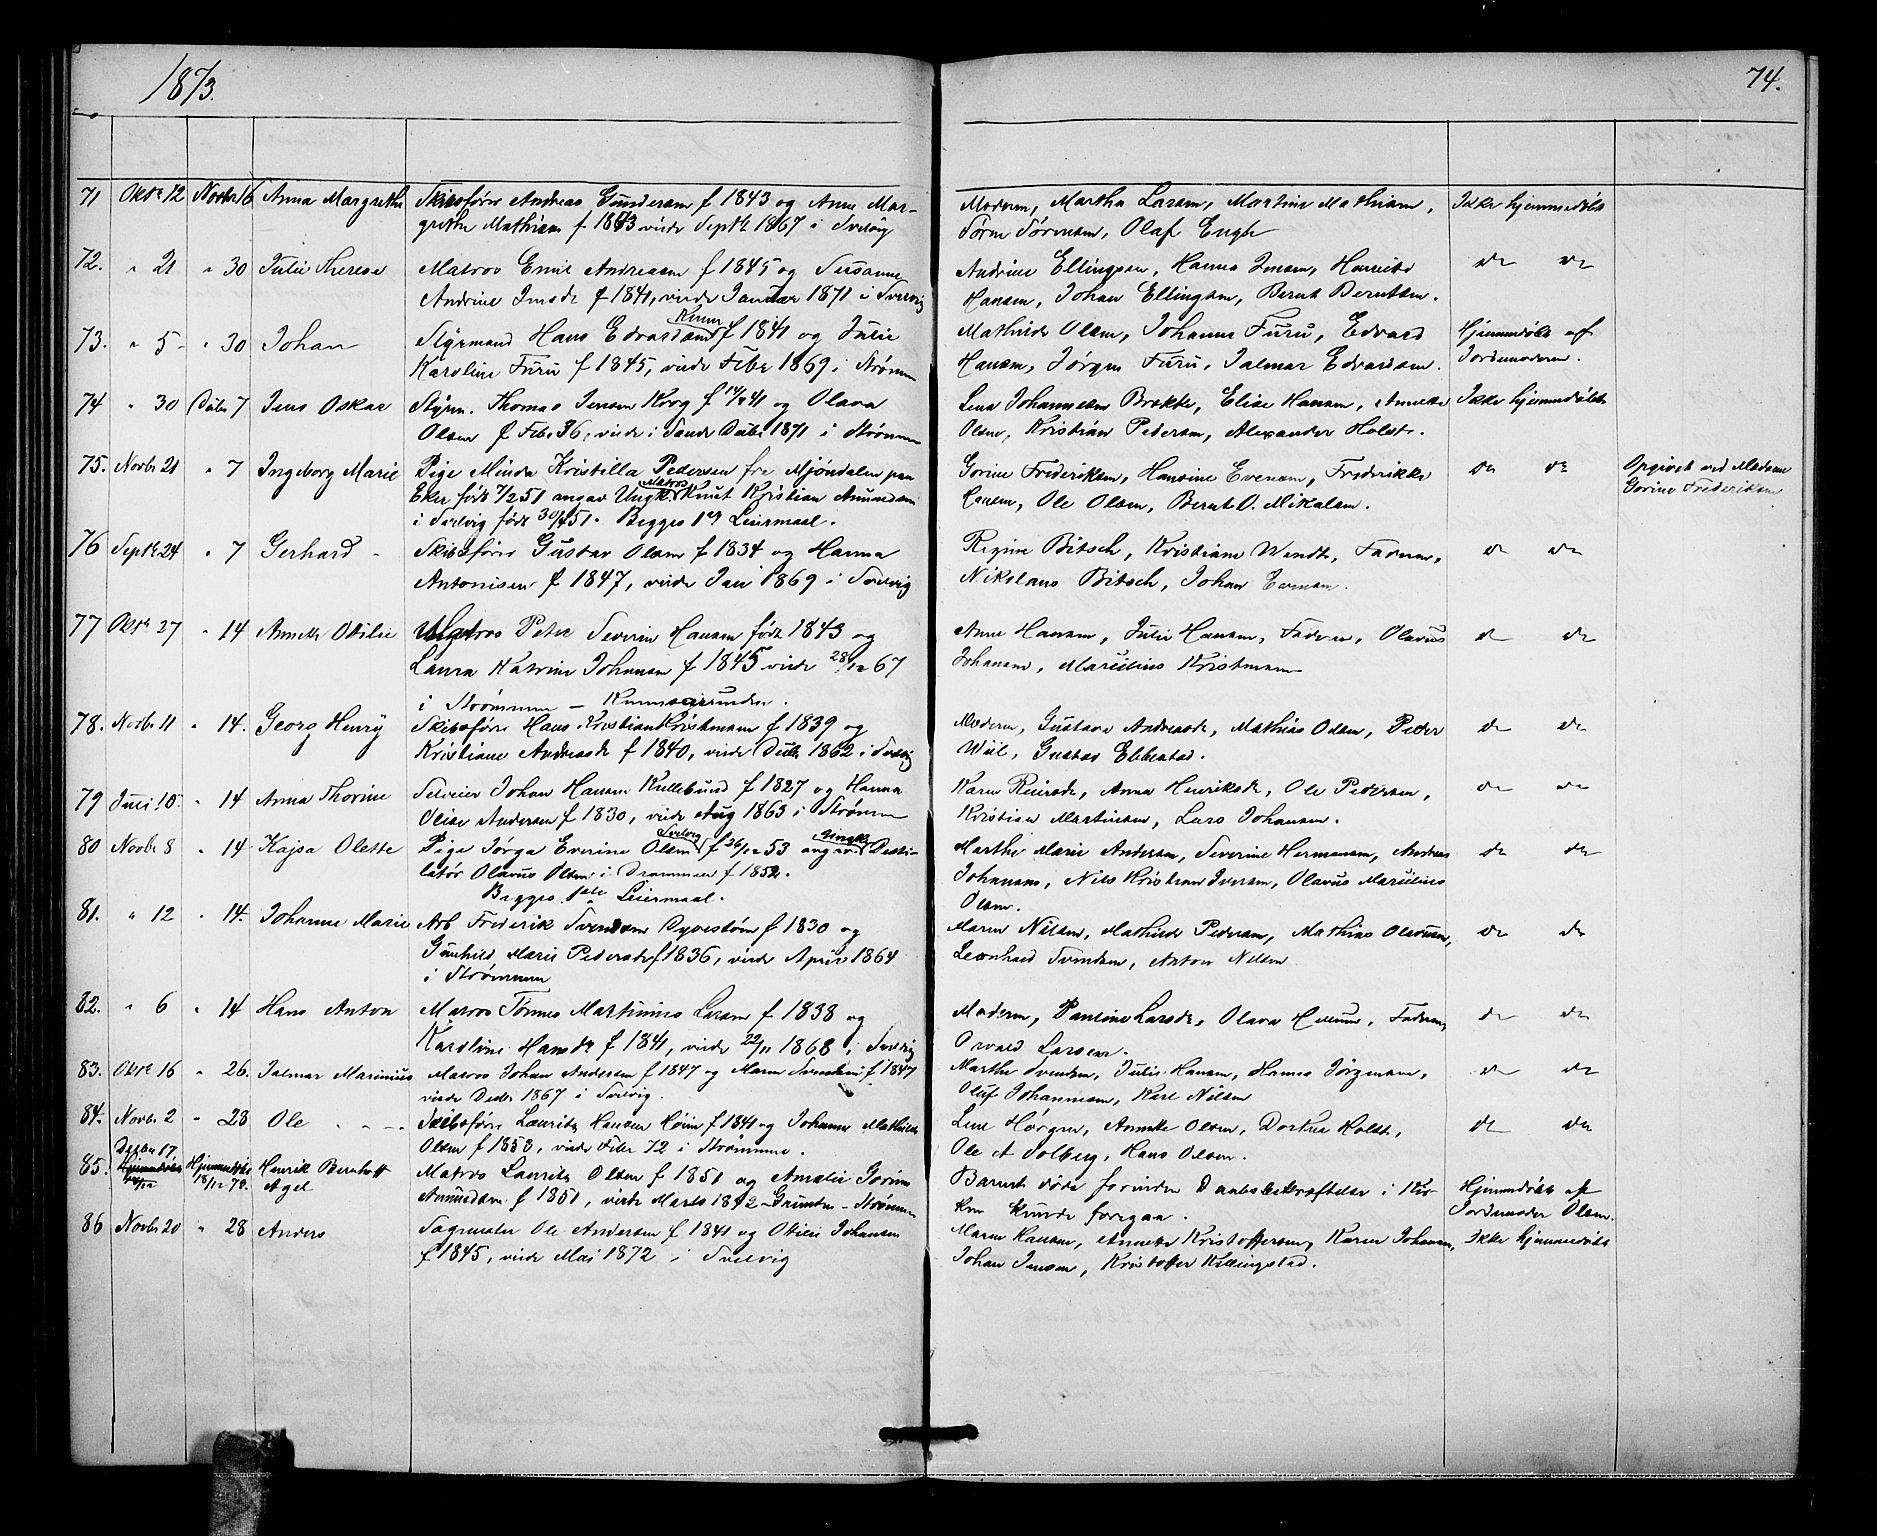 1873.
74.
71 Oktr 12 Novbr 16 Anna Margrethe Skibsfører Andreas Gundersen f 1843 og Anne Mar-
grethe Mathisen f 1843 viede Septbr 1867 i Svelvig
Moderen, Martha Larsen, Martine Mathisen, Ikke hjemmedøbt
Sørine Sørensen, Olaf Engh
72. " 21 " 30 Julie Therese Matros Emil Andreasen f 1845 og Susanne
Andrine Jensdr f 1841, viede Januar 1871 i Svelvig
Andrine Ellingsen, Hanna Jensen, Henriette do do
Hansen, Johan Ellingsen, Bernt Berntsen.
73. " 5 " 30 Johan Styrmand Hans Edvardsen f 1841 og Julie
Karoline Furu f 1845, viede Febr 1869 i Strømmen
Mathilde Olsen, Johanne Furu, Edvard Hjemmedøbt af
Hansen, Jørgen Furu, Jalmar Edvardsen. Jordemoderen.
74 " 30 Decbr 7 Jens Oskar Styrm. Thomas Jensen Korg f 14/2 41 og Olava
Olsen f Febr 36, viede i Sande Decbr 1871 i Strømmen
Lena Johannesen Brekke, Elise Hansen, Annette Ikke hjemmedøbt
Olsen, Kristian Pedersen, Alexander Holst.
75. Novbr 21 " 7 Ingeborg Marie Pige Minda Kristilla Pedersen fra Mjøndalen paa
Eker født 7/2 51 angav Ungk. Matros Knut Kristian Amundsen
i Svelvig født 30/4 51. Begges 1ste Leiermaal.
Gorine Frederiksen, Hansine Evensen, Frederikke do do Opgivet ved Moderen
Hansen, Ole Olsen, Bernt O. Mikalsen. Gorine Frederiksen
76 Septbr 24 " 7 Gerhard Skibsfører Gustav Olsen f 1834 og Hanna
Antonisen f 1847, viede Jan 1869 i Svelvig
Regine Bitsch, Kristiane Wendt, Faderen, do do
Nikolaus Bitsch, Johan Evensen.
77 Oktr 27 " 14 Annette Ottilie Matros Peter Severin Hansen født 1843 og
Laura Katrine Johansen f 1845 viede 28/12 67
i Strømmen –
Anne Hansen, Julie Hansen, Faderen, Olavus do do
Johansen, Marelius Kristensen
78. Novbr 11 " 14. Georg Henry Skibsfører Hans Kristian Kristensen f 1839 og
Kristiane Andreasdr f 1840, viede Decbr 1862 i Svelvig
Moderen, Gustava Andreasdr, Mathias Olsen, Peder do do
Wiel, Gustav Ebbestad
79 Juli 10. " 14 Anna Thorine Seleier Johan Hansen Kullebund f 1827 og Hanna
Olise Andersen f 1830, viede Aug 1863 i Strømmen
Karen Reiersdr, Anna Henriksdr, Ole Pedersen, do do
Kristian Martinsen, Lars Johansen.
80 Novbr 8 " 14 Kajsa Olette Pige Jørga Everine Olsen Svelvig f 26/12 53 angav Ungk. Desti-
latør Olavus Olsen i Drammen f 1852.
Begges 1ste Leiermaal.
Marthe Marie Andersen, Severine Hermansen, Andreas do do
Johansen, Nils Kristian Iversen, Olavus Marelius
Olsen.
81. " 12 " 14. Johanne Marie Arb Frederik Svendsen Dyvestøen f 1830 og
Gunhild Marie Pedersdr f 1836, viede April 1864
i Strømmen
Maren Nilsen, Mathilde Pedersen, Mathias Olavesen, do do
Leonhard Svendsen, Anton Nilsen
82. " 6 " 14 Hans Anton Matros Tønnes Martinius Larsen f 1838 og
Karoline Hansdr f 1841, viede 22/11 1868 i Svelvig
Moderen, Pauline Larsdr, Olava Hellum, Faderen, do do
Osvald Larsen.
83. Oktr 16 " 26. Jalmar Marinius Matros Johan Andersen f 1847 og Maren Svendsen f 1847
viede Decbr 1867 i Svelvig.
Marthe Svendsen, Julie Hansen, Hanna Jørgensen, do do
Oluf Johannesen, Karl Nilsen
84. Novbr 2 " 28 Ole Skibsfører Lauritz Hansen Høien f 1841 og Johanne Mathilde
Olsen f 1853, viede Febr 72 i Strømmen.
Lene Hørgen, Annette Olsen, Dorthea Holst, do do
Ole A Solberg, Hans Olsen.
85. Decbr 17, Hjemmedøbt 18/12 73. Henrik Bernhott
Agel
Matros Lauritz Olsen f 1851 og Amalie Gorine
Amundsen f 1851, viede Marts 1872 – Grunden – Strømmen
Barnet døde forinden Daabsbekræftelse i Kir- Hjemmedøbt af
ken kunde foregaa. Jordemoder Olsen.
86 Novbr 20 " 28 Anders Sagmester Ole Andersen f 1841 og Otilie Johansen
f 1845, viede Mai 1872 i Svelvig
Maren Hansen, Annette Kristoffersen, Karen Johansen, Ikke hjemmedøbt
Johan Jensen, Kristoffer Killingstad.